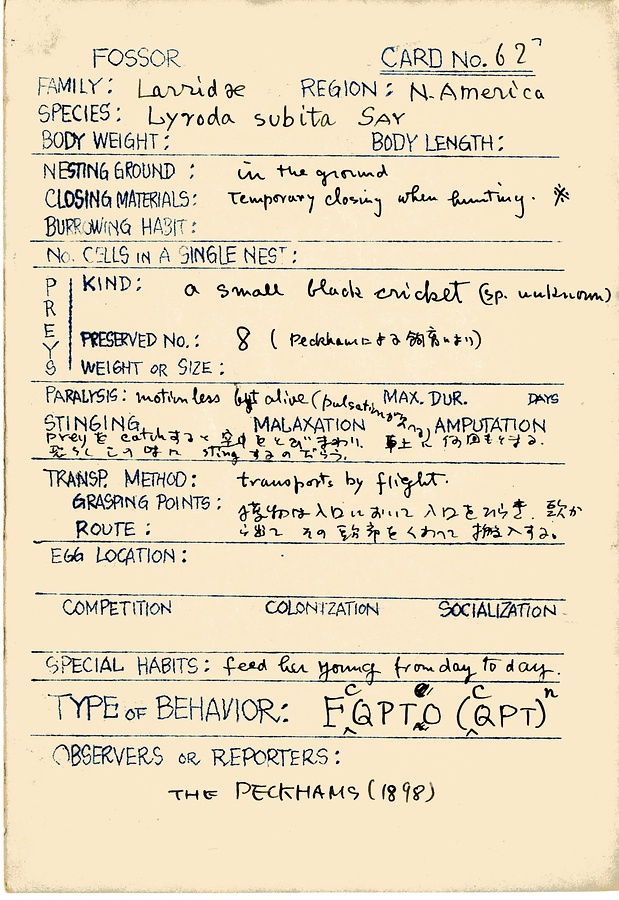 FOSSOR CARD No. 627
FAMILY: Larridae REGION: N. America
SPECIES: Lyroda subita SAY
BODY WEIGHT: BODY LENGTH:
NESTING GROUND : in the ground
CLOSING MATERIALS: Temporary closing when hunting. ※
BURROWING HABIT:
No. CELLS IN A SINGLE NEST:
PREYS
KIND: a small black cricket (sp. unknown)
PRESERVED No.: 8 ( Peckhamによる飼育により)
WEIGHT OR SIZE :
PARALYSIS: motionless but alive (pulsating MAX. DUR. DAYS
STINGING MALAXATION AMPUTATION
preyを catchすると空中をとびまわり、 何回もする.
恐らくこの時に stingするのだろう.
TRANSP. METHOD: transports by flight.
GRASPING POINTS: 獲物は入口において入口をひらき、頭か
ROUTE : ら出て その触角をくわえて搬入する。
EGG LOCATION:
COMPETITION COLONIZATION SOCIALIZATION
SPECIAL HABITS: feed her young from day to day.
TYPE OF BEHAVIOR: F^CQPTO (^CQPT)^n
OBSERVERS OR REPORTERS:
THE PECKHAMS (1898)